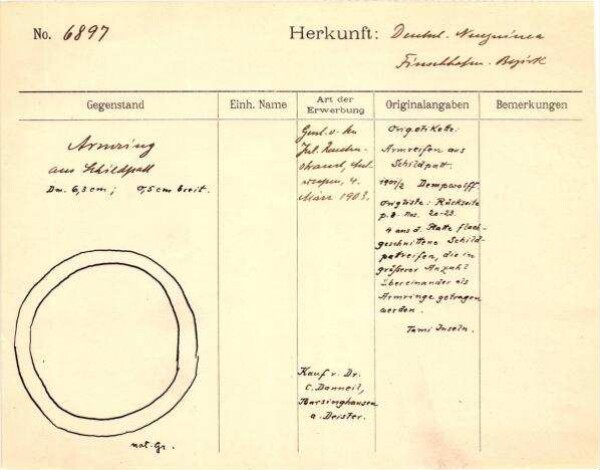 No. 6897
Herkunft: Deutsch. Neuguinea
Finschhafen-Bezirk
Gegenstand
Einh. Name
Art der Erwerbung
Originalangaben
Bemerkungen
Armring
aus Schildpatt
Dm. 6,3 cm; 0,5 cm breit.
nat. Gr.
4.
März 1903.
Kauf v. Dr.
C. Danneil,
Barsinghausen
a. Deister.
Origetikete:
Armreifen aus
Schildpatt.
Dempwolff
Origliste: Rückseite
20-23.
4 aus d. Platte flach
geschnittene Schild-
patreifen, die in
größerer Anzahl
übereinander als
Armringe getragen
werden.
Tami Inseln.